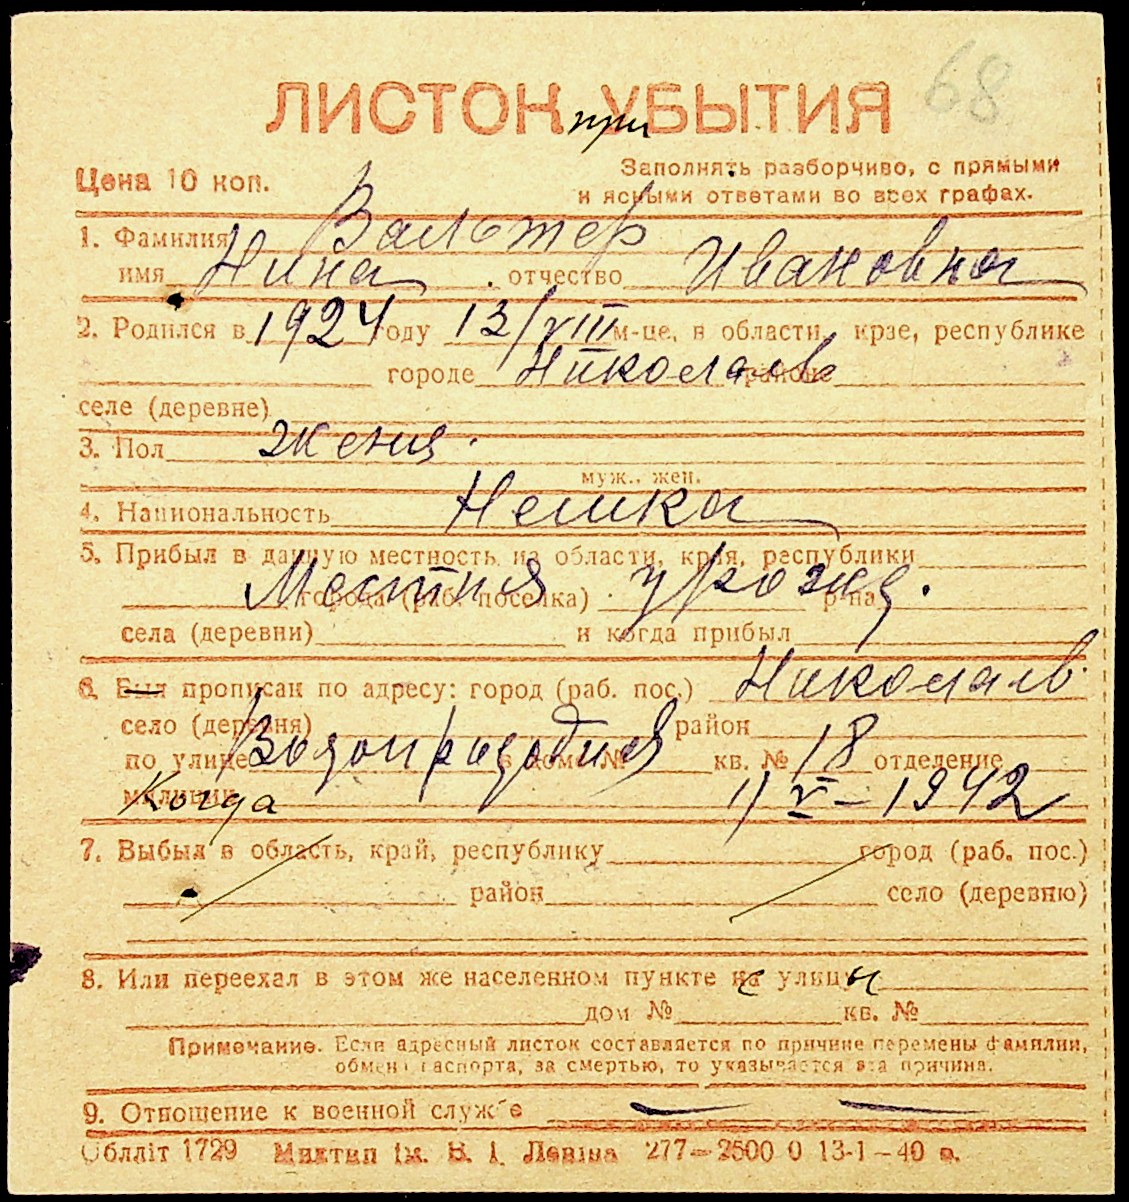 68
ЛИСТОК при УБЫТИЯ
Цена 10 коп.
Заполнять разборчиво, с прямыми
и ясными ответами во всех графах.
1. Фамилия Вальтер
имя Нина отчество Ивановна
2. Родился в 1924 году 13/VIII м-це, в области, крае, республике
городе Николаев районе
селе (деревне)
3. Пол женск.
муж., жен.
4. Национальность Немка
5. Прибыл в данную местность из области, края, республики
Местная урожд.
города (раб. поселка) р-на
села (деревни) и когда прибыл
6. Был прописан по адресу: город (раб. пос.) Николаев
село (деревня) район
по улице в доме № кв. № 18 отделение
милиции Когда 11 V – 1942
7. Выбыл в область, край, республику город (раб. пос.)
район село (деревню)
8. Или переехал в этом же населенном пункте на улицы
дом № кв. №
Примечание. Если адресный листок составляется по причине перемены фамилии,
обмена паспорта, за смертью, то указывается эта причина.
9. Отношение к военной службе
Облліт 1729 Миктип ім. В. І. Леніна 277—2500 0 13-1-40 в.